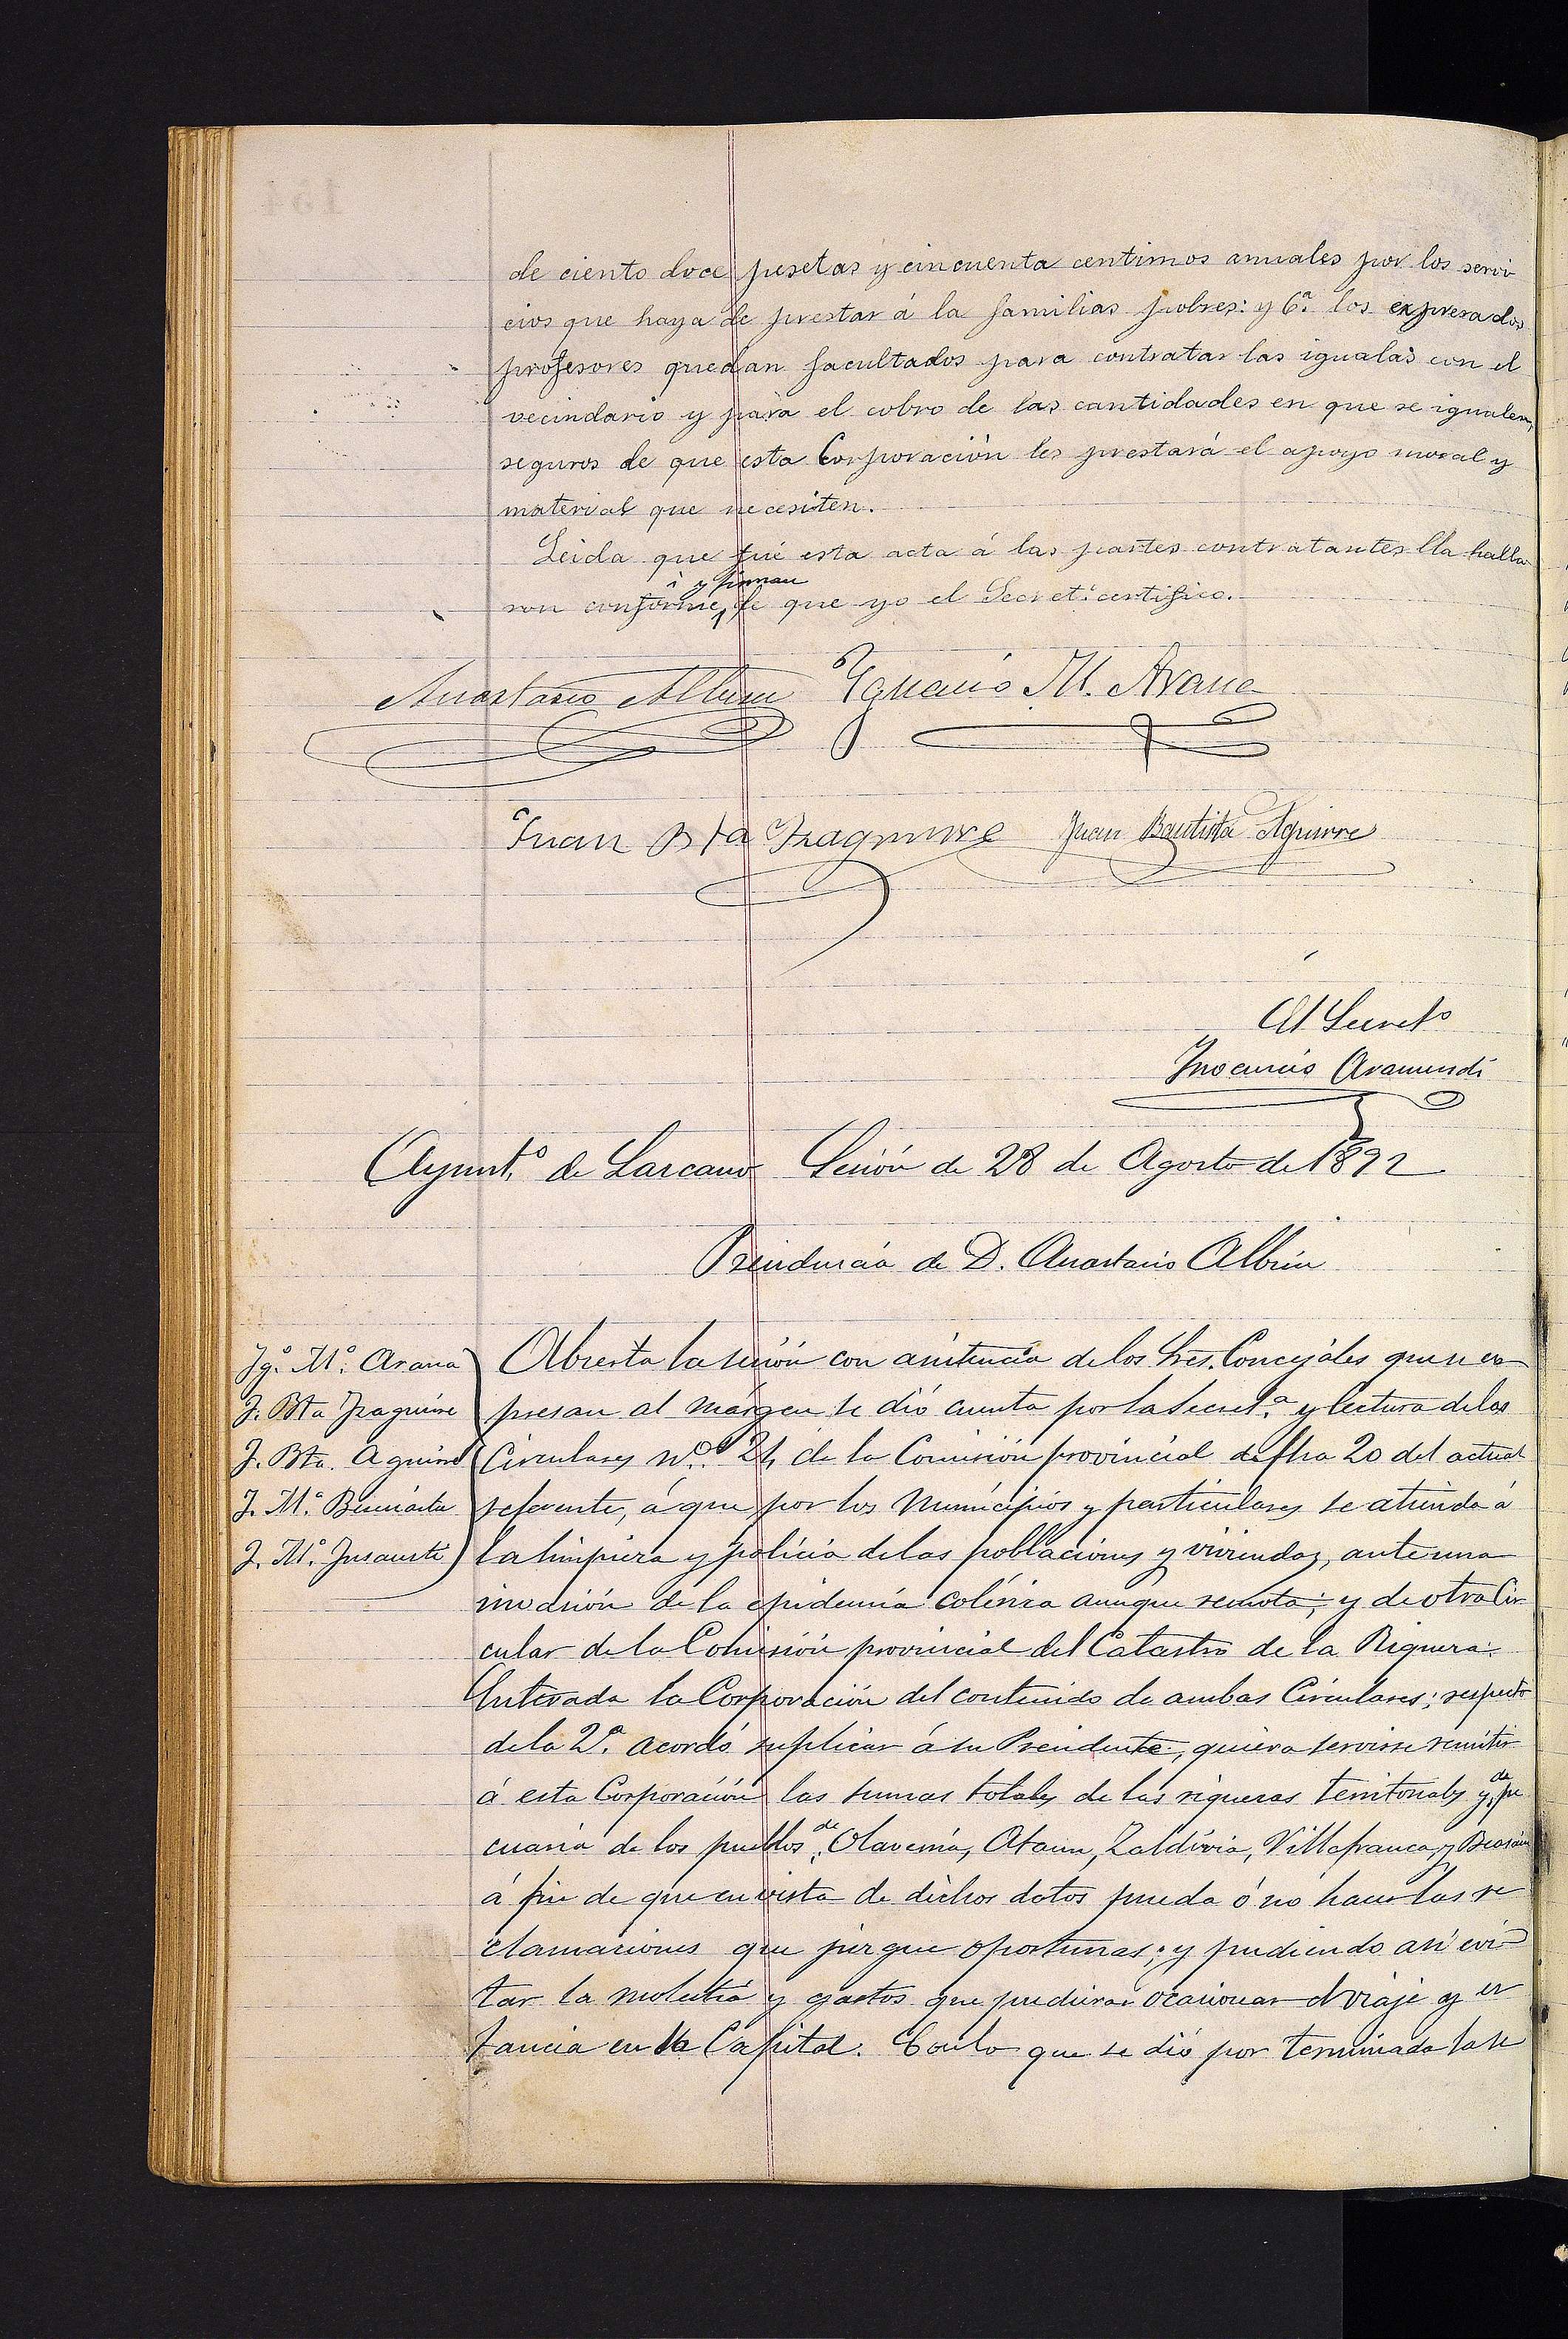 de ciento doce pesetas y cincuenta centimos anuales por los servi
cios que haya de prestar á la familias pobres: y 6.ª los expresados
profesores quedan facultados para contratar las igualas con el
vecindario y para el cobro de las cantidades en que se igualen,
seguros de que esta Corporación les prestará el apoyo moral y
material que necesiten.
Leida que fué esta acta á las partes contratantes lla halla
y firman
ron conforme, de que yo el Secret.º certifico.
Anastasio Albisu Ygnacio M. Arana
Juan Bta Yzaguirre Juan Bautista Aguirre
El Secret.º
Ynocencio Aramendi
Ayunt.º de Lazcano Sesión de 28 de Agosto de 1892
Presidencia de D. Anastasio Albisu
Jg.º M.ª Arana
J. Bta Yzaguirre
J. Bta. Aguirre
J. M.ª
J. M.ª Insausti
Abierta la sesión con asistencia de los Sres. Concejales que se ex
presan al márgen se dió cuenta por la Secret.ª y lectura de las
Circulares n.º 21, de la Comisión provincial de fha 20 del actual
referente, á que por los Municipios y particulares se atienda á
la limpieza y policia de las poblaciones y viviendas, ante una
invasión de la epidemia colérica aunque remota; y de otra Cir
cular de la Comisión provincial del Catastro de la Riqueza.
Enterada la Corporación del contenido de ambas Circulares; respecto
de la 2.ª acordó suplicar á su Presidente, quiera servirse remitir
á esta Corporación las sumas totales de las riquezas territoriales y de pe
cuaria de los pueblos de Olaverria, Ataun, Zaldivia, Villafranca, y Beasain
á fin de que en vista de dichos datos pueda ó nó hacer las re
clamaciones que juzgue oportunas; y pudiendo asi evi
tar la molestia y gastos que pudieran ocasionar el viaje y es
tancia en la Capital. Con lo que se dió por terminada la se